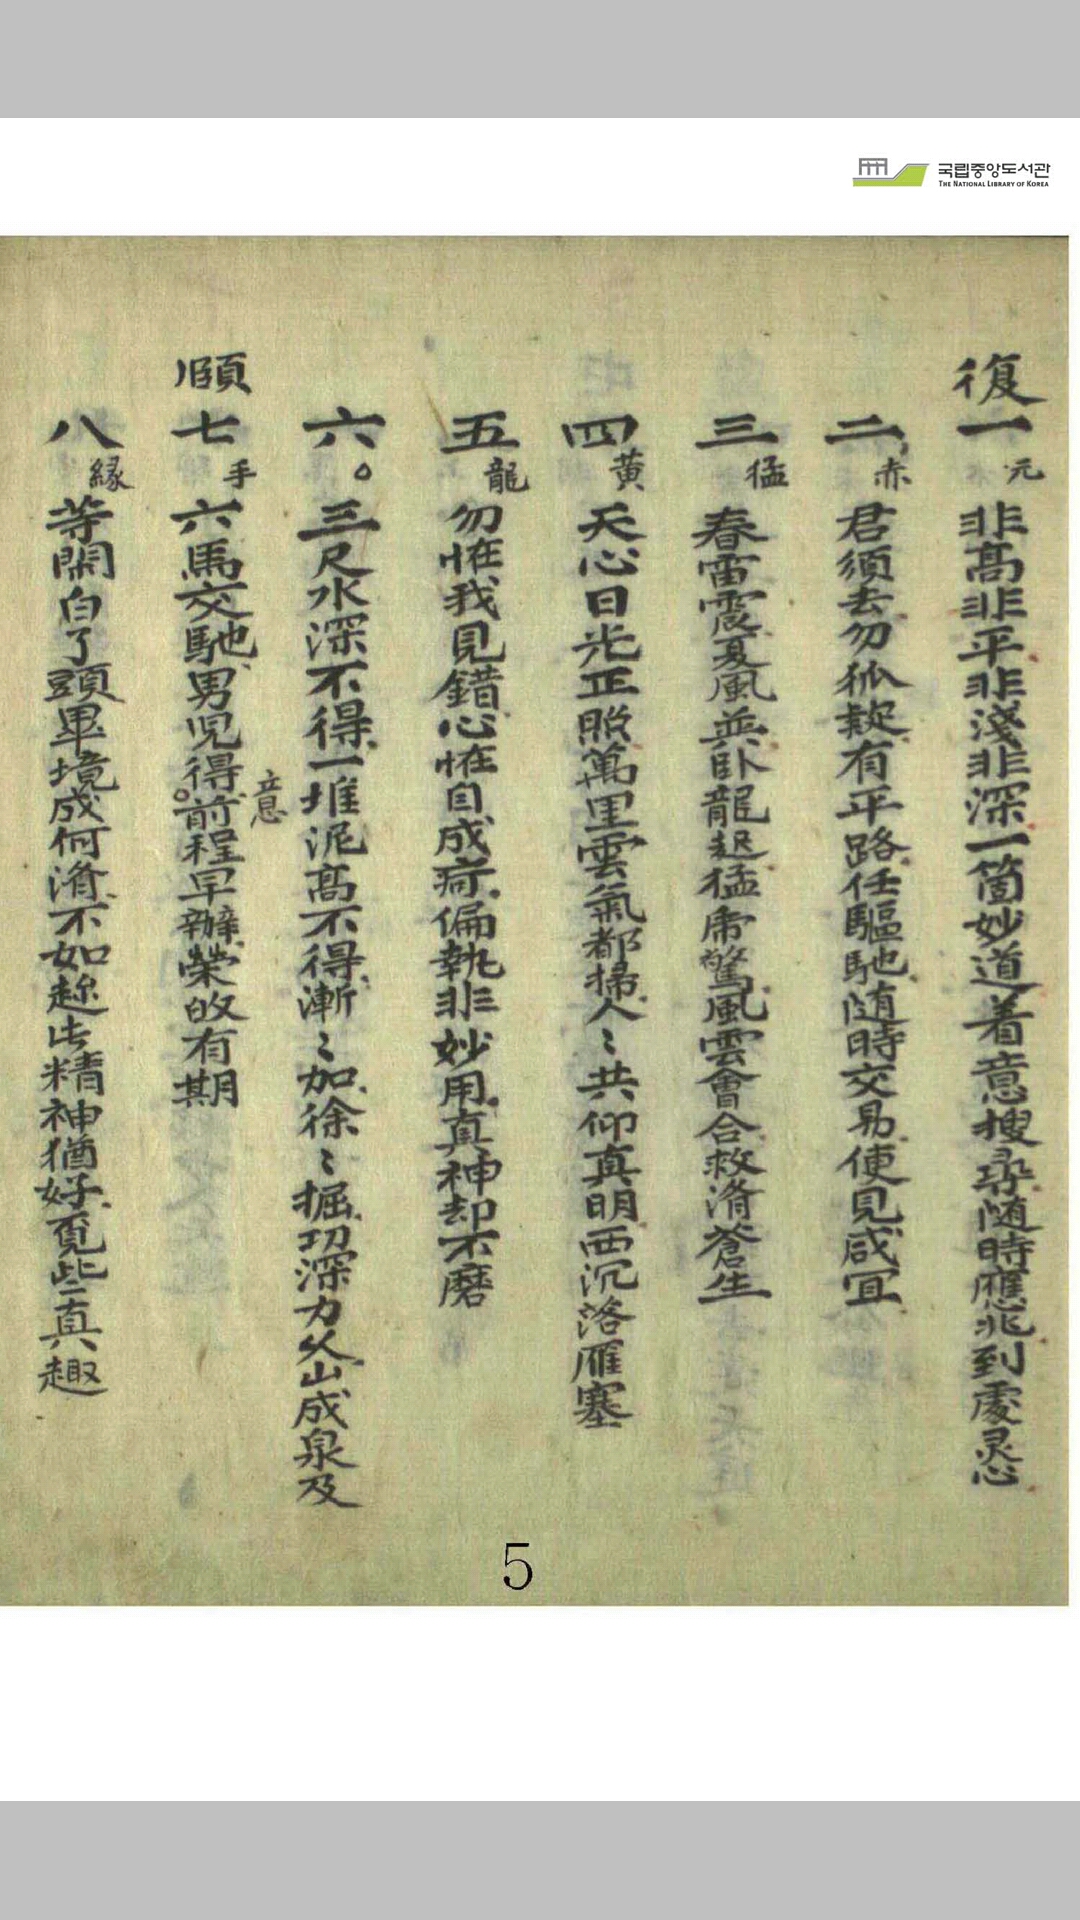 국립중앙도서관
THE NATIONAL LIBRARY OF KOREA
復
一 元 非高非平非淺非深一箇妙道着意搜尋随時應兆到處灵心
二 赤 君須去勿狐疑有平路任驅馳随時交易使見咸宜
三 猛 春雷震夏風並卧龍起猛虎驚風雲會合救濟蒼生
四 黄 天心日光正照萬里雲氣都掃人〻共仰真明西沉落雁塞
五 龍 勿怪我見錯心怪自成病偏執非妙用真神却不磨
六 。 三尺水深不得一堆泥高不得漸〻加徐〻掘功深力久山成泉及
頤
七 手 六馬交馳男児得。前程早辦榮攸有期
意
八 緣 等閑白了頭畢境成何濟不如趂此精神猶好覔些真趣
5